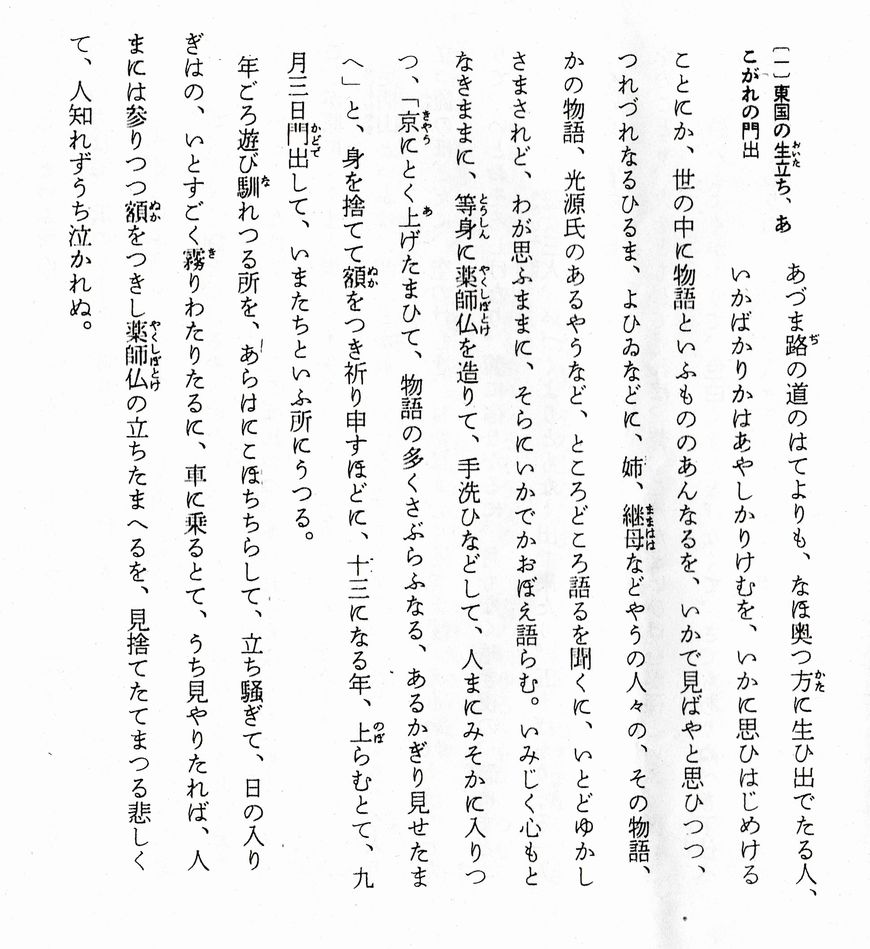 〔一〕東国の生立ち、あ
こがれの門出
あづま路の道のはてよりも、なほ奥つ方に生ひ出でたる人、
いかばかりかはあやしかりけむを、いかに思ひはじめける
ことにか、世の中に物語といふもののあんなるを、いかで見ばやと思ひつつ、
つれづれなるひるま、よひゐなどに、姉、継母などやうの人々の、その物語、
かの物語、光源氏のあるやうなど、ところどころ語るを聞くに、いとどゆかし
さまされど、わが思ふままに、そらにいかでかおぼえ語らむ。いみじく心もと
なきままに、等身に薬師仏を造りて、手洗ひなどして、人まにみそかに入りつ
つ、「京にとく上げたまひて、物語の多くさぶらふなる、あるかぎり見せたま
へ」と、身を捨てて額をつき祈り申すほどに、十三になる年、上らむとて、九
月三日門出して、いまたちといふ所にうつる。
年ごろ遊び馴れつる所を、あらはにこほちちらして、立ち騒ぎて、日の入り
ぎはの、いとすごく霧りわたりたるに、車に乗るとて、うち見やりたれば、人
まには参りつつ額をつきし薬師仏の立ちたまへるを、見捨てたてまつる悲しく
て、人知れずうち泣かれぬ。